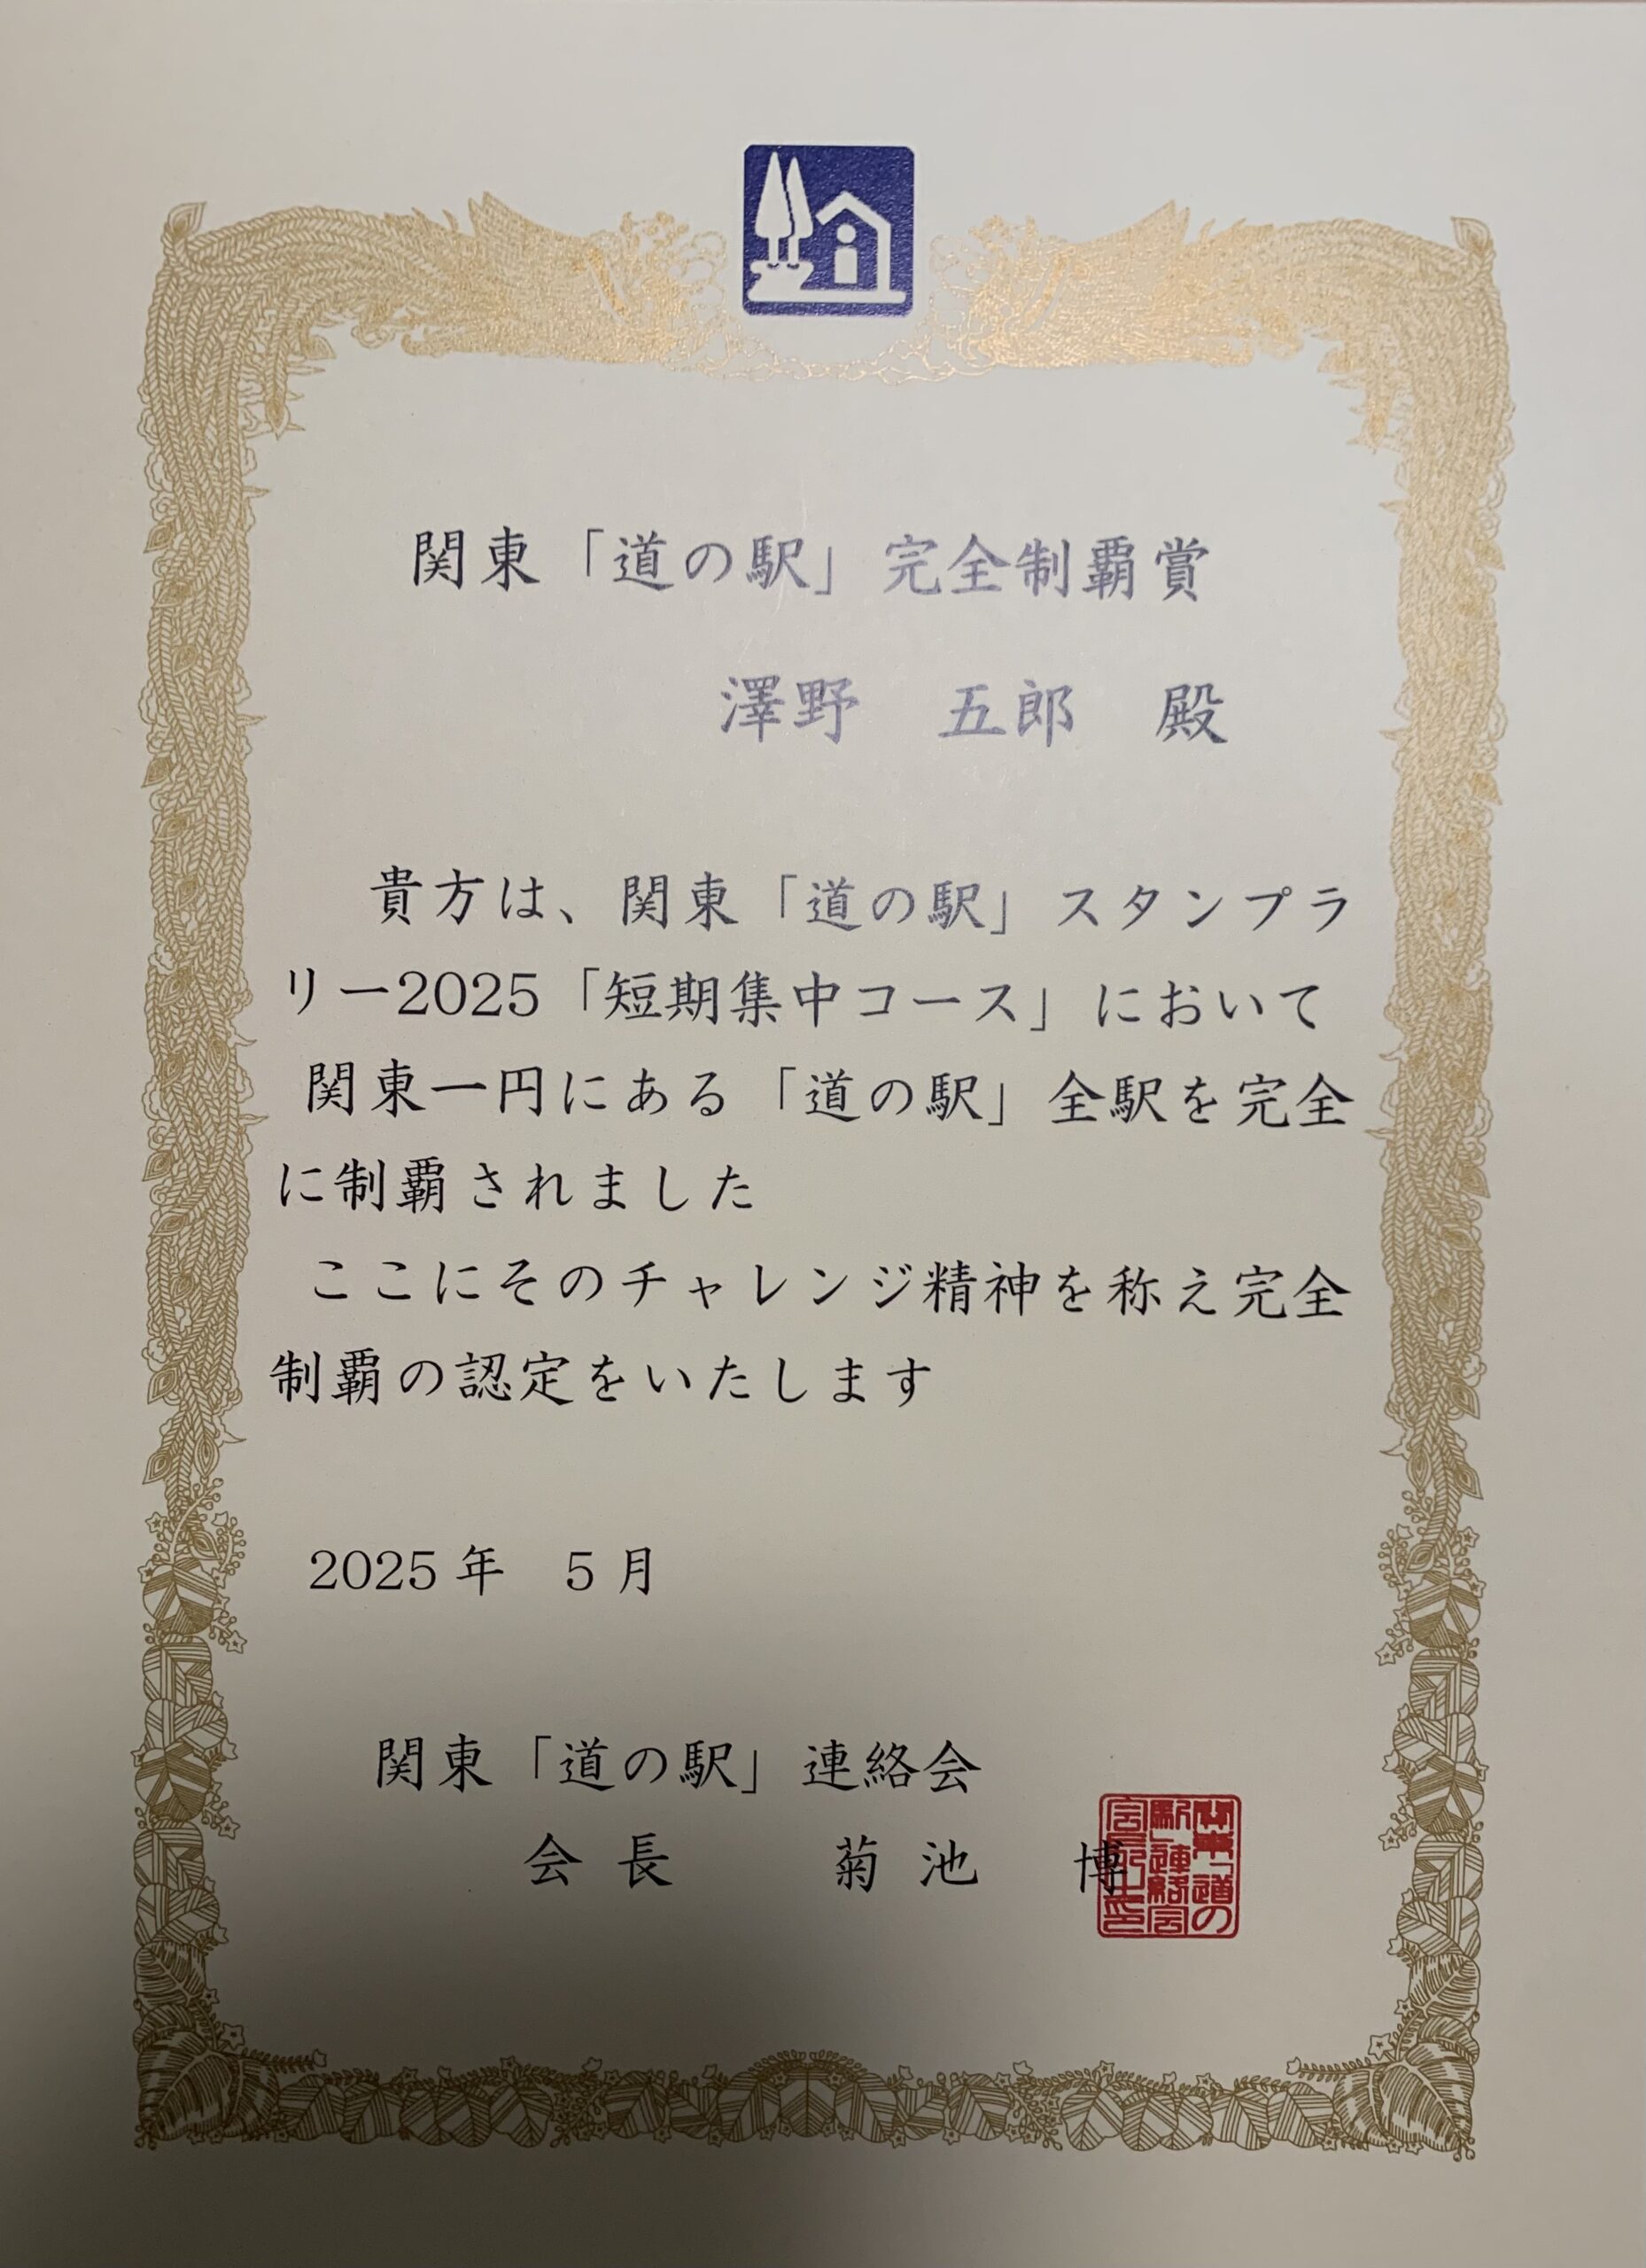 関東「道の駅」完全制覇賞
澤野　五郎　殿
貴方は、関東「道の駅」スタンプラ
リー2025「短期集中コース」において
関東一円にある「道の駅」全駅を完全
に制覇されました
ここにそのチャレンジ精神を称え完全
制覇の認定をいたします
2025年　5月
関東「道の駅」連絡会
会長　菊池　博
関東「道の
駅」連絡会
会長之印